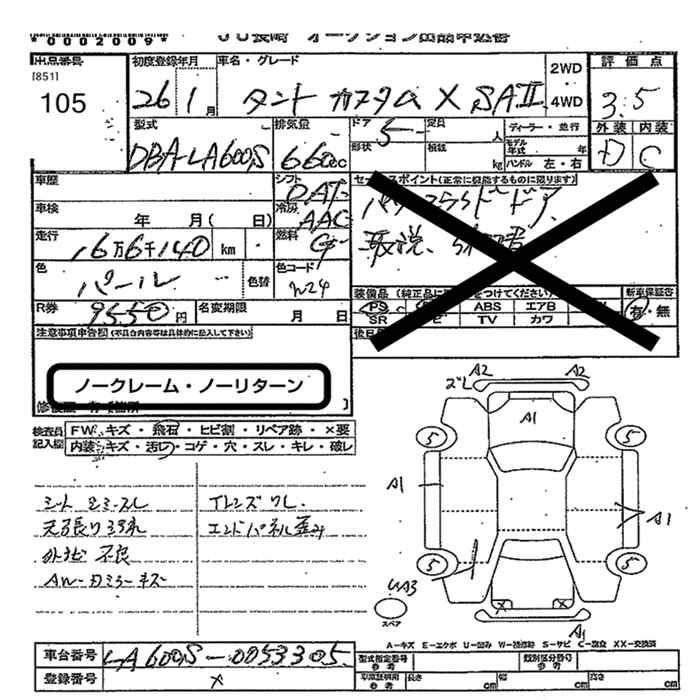 *0002009* JU長崎 オークション出品申込書
出品番号 初度登録年月 車名・グレード 2WD 評価点
[851]
105 26 1月 タント カスタム X SAⅡ 4WD 3.5
型式 排気量 ドア 定員 人 ディーラー・並行 外装 内装
DBA-LA600S 660cc 5 形状 積載 kg モデル年式 年 D C
ハンドル 左・右
車歴 シフト DAT セールスポイント(正常に機能するものに限ります)
車検 年 月( 日) 冷房 AAC パワースライドドア
走行 16万6千140km 燃料 G 取説
色 パール 色替 色コード W24
装備品(純正品に をつけてください) 新車保証書
R券 9550円 名変期限 月 日 PS ABS エアB 有・無
SR TV カワ
注意事項申告欄(不具合内容等は具体的に記入して下さい) 後日
ノークレーム・ノーリターン
検査員記入欄 FW キズ・飛石・ヒビ割・リペア跡・×要
内装 キズ・汚レ・コゲ・穴・スレ・キレ・破レ
シート シミ・スレ Tレンズワレ
天張り汚れ エンドパネル歪み
外ナビ 不良
AW・Dミラーキズ
ズレ A2 A2
A1
5 5
A1 A1
5 5
UA3
スペア
A1
A-キズ E-エクボ U-凹み W-補修跡 S-サビ C-腐食 XX-交換済
車台番号 LA600S-0053305 型式指定番号 参考 類別区分番号 参考
登録番号 × 車庫証明用 参考 長さ cm 幅 cm 高さ cm